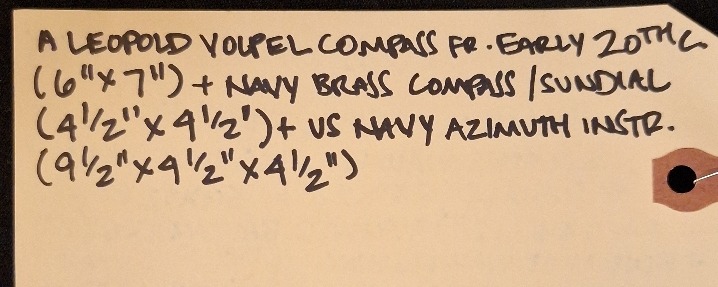 A LEOPOLD VOLPEL COMPASS FR. EARLY 20TH C.
(6"x7") + NAVY BRASS COMPASS/SUNDIAL
(4 1/2"x4 1/2") + US NAVY AZIMUTH INSTR.
(9 1/2"x4 1/2"x4 1/2")